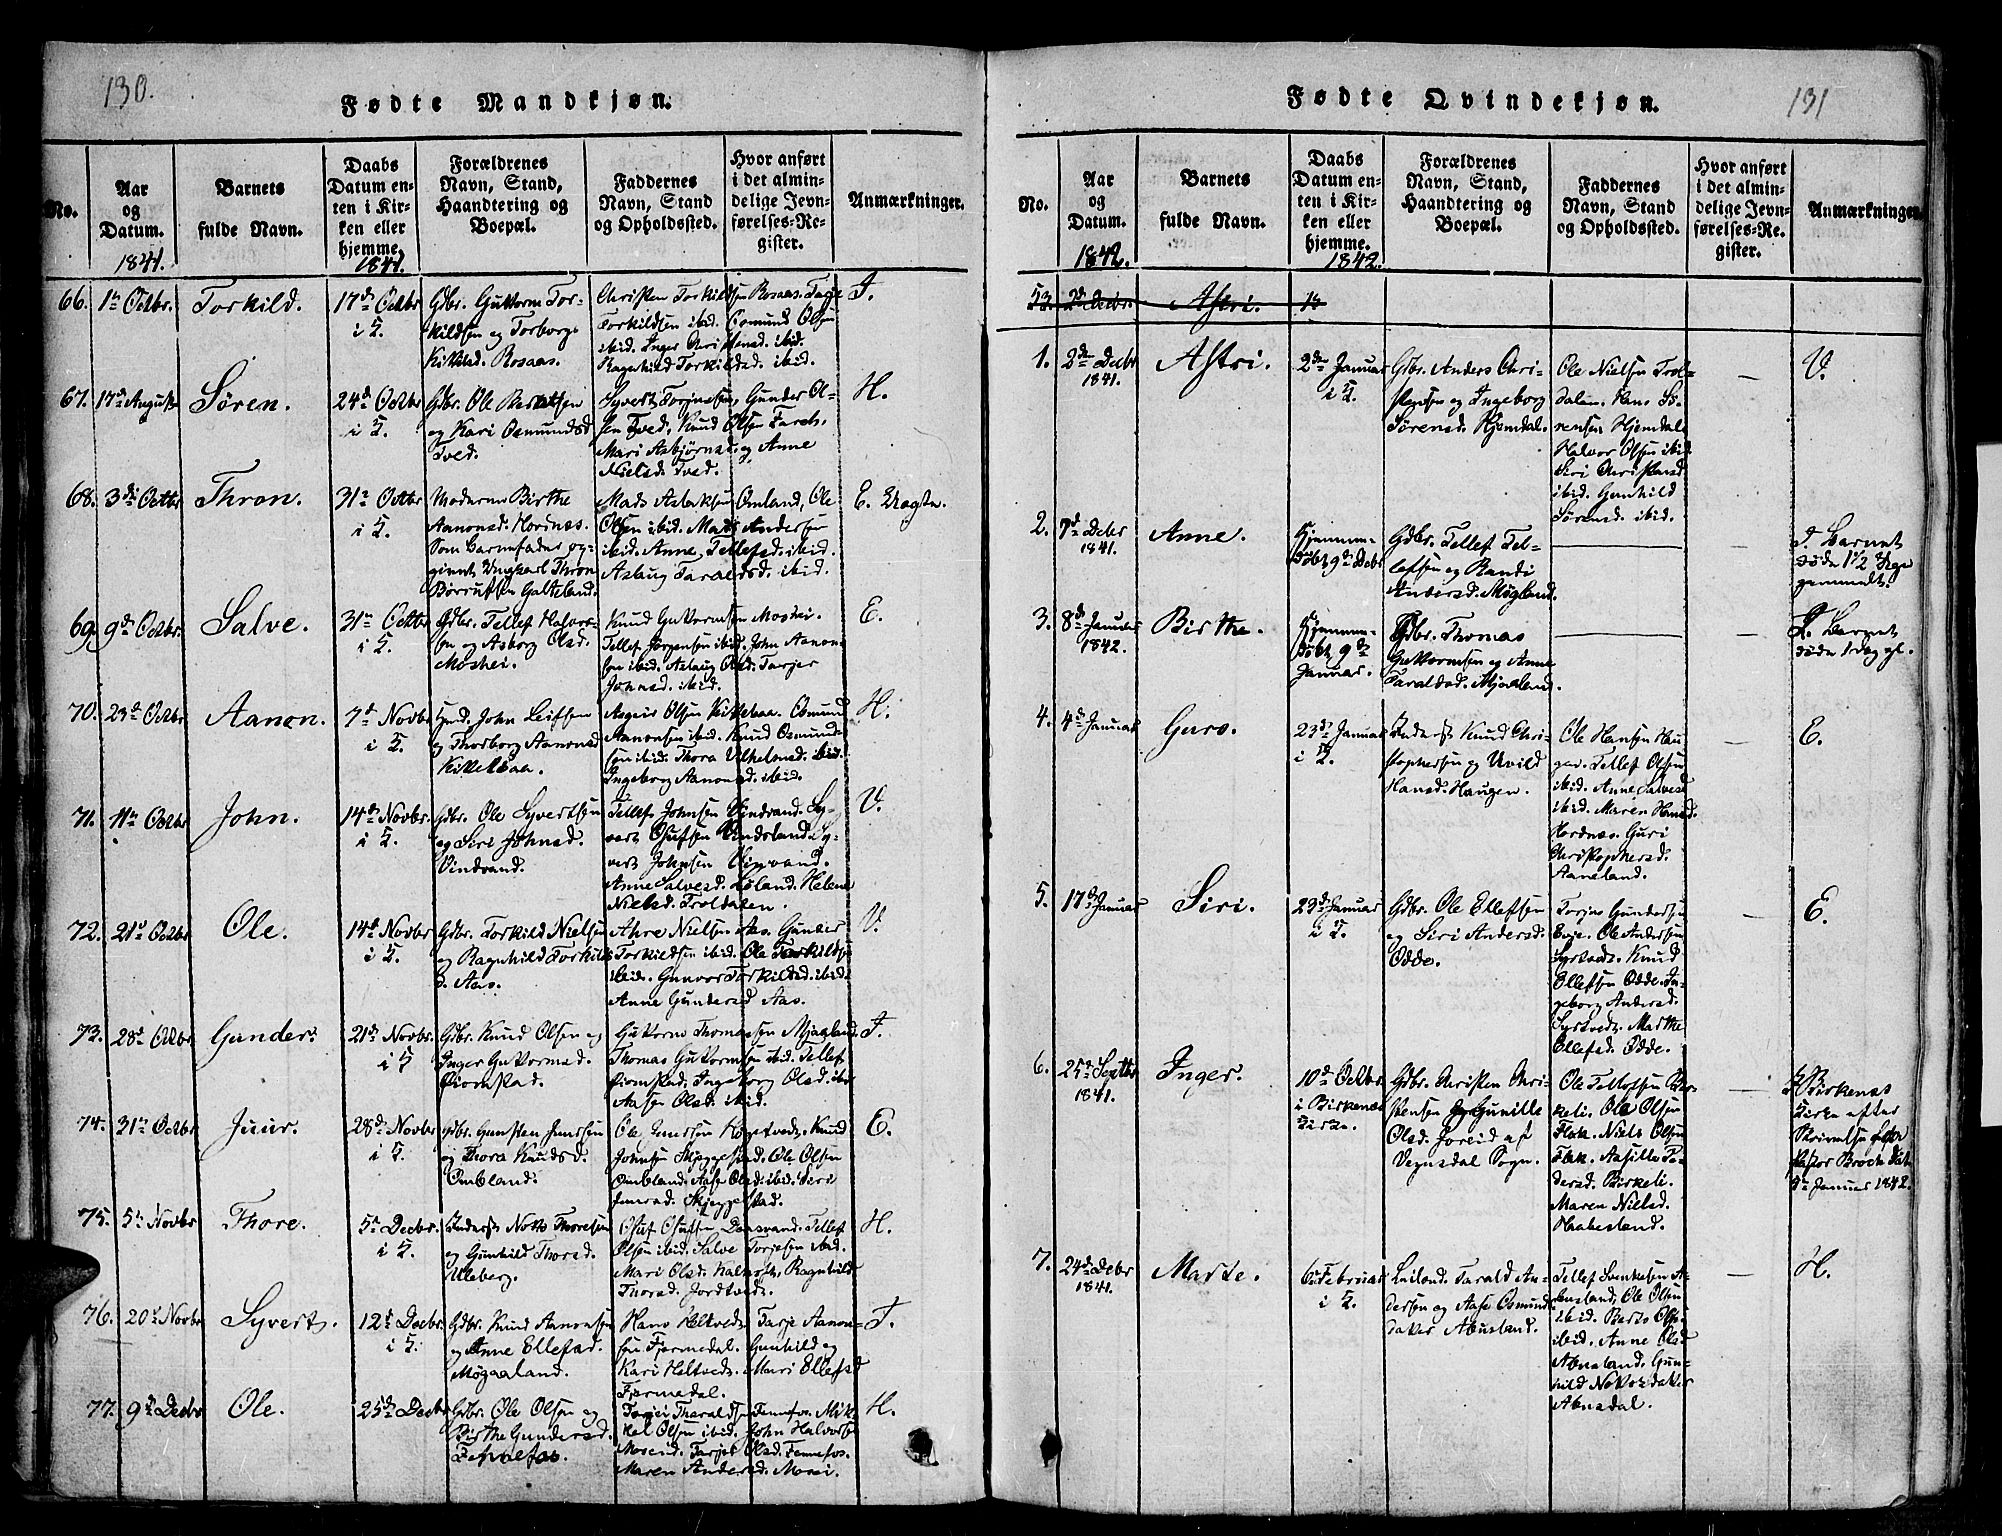 130.
Fødte Mandkjøn.
No.
Aar
og
Datum.
1841.
Barnets
fulde Navn.
Daabs
Datum en-
ten i Kir-
ken eller
hjemme.
1841.
Forældrenes
Navn, Stand,
Haandtering og
Boepæl.
Faddernes
Navn, Stand
og Opholdssted.
Hvor anført
i det almin-
delige Jevn-
førelses-Re-
gister.
Anmærkninger.
66. 1ste Octbr. Torkild. 17de Octbr
i K.
Gdbr. Guttorm Tor-
kildsen og Torborg
Rosaas.
Christen Torkildsen Rosaas. Tarje
Torkildsen ibid. Osmund Olsen
ibid. Inger Christensd. ibid.
Ragnhild Torkildsd. ibid.
T.
67. 17de August Søren. 24de Octbr
i K.
Gdbr. Ole
og Kari Osmundsd
Tved.
Syvert Torjussen, Gunder Ol-
sen Tved. Knud Olsen
Mari Asbjørnsd. og Anne
Nielsd. Tved.
H.
68. 3die Octbr Thron. 31te Octbr
i K.
Moderen Birthe
Aanonsd. Hornæs.
Som barnefader og-
givet Ungkarl Thron
Galteland.
Mads Aslaksen Omland, Ole
Olsen ibid. Mads Andersen
ibid. Anne Tellefsd. ibid.
Aslaug Taraldsd. ibid.
E. Uægte.
69. 9de Octbr. Salve. 31te Octbr
i K.
Gdbr. Tellef Halvor-
sen og Asborg Olsd.
Moshei.
Knud Guttormsen Moshei.
Tellef Jørgensen ibid. John Aanon-
sen ibid. Aslaug Olsd. Tarjer
Johnsd. ibid.
E.
70. 23de Octbr Aanon. 7de Novbr
i K.
John Leifsen
og Thorborg Aanonsd
Kittelsaa.
Asgeir Olsen Kittelsaa. Osmund
Aanonsen ibid. Knud Osmund-
sen ibid. Thora Vilhelmsd. ibid.
Ingeborg Aanonsd. ibid.
H.
71. 11te Octbr John. 14de Novbr.
i K.
Gdbr. Ole Syvertsen
og Siri Johnsd.
Vindvand.
Tellef Johnsen Vindvand. Sy-
vert Olufsen Sy-
vert Johnsen
Anne Salvesd. Loland. Helene
Nielsd. Troldalen.
V.
72. 21de Octbr Ole. 14de Novbr
i K.
Gdbr. Torkild Nielsen
og Ragnhild Torkilds
d. Aas.
Ahre Nielsen Aas. Gunder
Torkildsen ibid. Ole Torkildsen
ibid. Gunvor Torkildsd. ibid.
Anne Gundersd Aas.
V.
73. 28de Octbr Gunder. 21de Novbr.
i K.
Gdbr. Knud Olsen og
Inger Guttormsd.
Guttorm Thomassen Mjaaland.
Thomas Guttormsen ibid. Tellef
Ingeborg Olsd. ibid
Aasen Olsd. ibid.
T.
74. 31te Octbr Juur. 28de Novbr
i K.
Gdbr. Gunsten Juursen
og Thora Knudsd.
Ombland.
Ole Juursen Høgetvedt. Knud
Johnsen Skjeggestad. Ole Olsen
Ombland. Aase Olsd. ibid. Siri
Juursd. Skjeggestad.
E.
75. 5te Novbr Thore. 5te Decbr.
i K.
Inderst Thoresen
og Gunhild Thorsd.
Uleberg.
Oluf Olufsen Dansvand. Tellef
Olsen ibid. Salve Torjesen ibid.
Mari Olsd. Ragnhild
Thorsd. Jordtvedt.
H.
76. 20de Novbr Syvert. 12te Decbr.
i K.
Gdbr. Knud Aanonsen
og Anne Ellefsd.
Møgaaland.
Hans Heltvedt. Tarje Aanon-
sen Fjermedal. Gunhild og
Kari Heltvedt. Mari Ellefsd
Fjermedal.
T.
77. 9de Decbr Ole. 25de Decbr
Gdbr. Ole Olsen og
Birthe Gundersd.
Torjei Tharaldsen Fennefos. Mik-
kel Olsen ibid. John Halvorsen
Moseid. Tarjer Olsd. Fennefos.
Maren Andersd. Mosei.
H.
131
Fødte Qvindekjøn.
No.
Aar
og
Datum.
1842.
Barnets
fulde Navn.
Daabs
Datum en-
ten i Kir-
ken eller
hjemme.
1842.
Forældrenes
Navn, Stand,
Haandtering og
Boepæl.
Faddernes
Navn, Stand
og Opholdssted.
Hvor anført
i det almin-
delige Jevn-
førelses-Re-
gister.
Anmærkninger.
53. 2de Decbr. Astri.
1. 2den Decbr
1841.
Astri. 2den Januar
i K.
Gdbr. Anders Chri-
stensen og Ingeborg
Sørensd. Hjemdal.
Ole Nielsen Trol-
dalen. Hans Sø-
rensen Hjemdal
Halvor Olsen ibid.
Siri Christensd
ibid. Gunhild
Sørensd. ibid.
— V.
2. 7de Decbr
1841.
Anne. Hjemme-
døbt 9de Decbr
Gdbr. Tellef Tel-
lefsen og Randi
Andersd. Møgland.
— — Barnet
døde 1½ Dage
gammelt.
3. 8de Januar
1842.
Birthe. Hjemme-
døbt 9de
Januar.
Gdbr. Thomas
Guttormsen og Anne
Taraldsd. Mjaaland.
— — Barnet
døde 1 Dag gl.
4. 4de Januar Guro. 23de Januar
i K.
Inderst Knud Chri-
stophersen og Uvild
Hansd. Haugen.
Ole Hansen Hau-
gen. Tellef Olsen
ibid. Anne Salvesd
ibid. Maren Hansd.
Hordnæs. Guri
Christophersd.
Aaneland.
— E.
5. 17de Januar Siri. 23de Januar
i K.
Gdbr. Ole Ellefsen
og Siri Andersd.
Odde.
Torjus Gundersen
Evje. Ole Andersen
Syrtvedt. Knud
Ellefsen Odde. In-
geborg Andersd.
Syrtvedt. Marthe
Ellefsd. Odde.
— E.
6. 25de Septbr
1841.
Inger. 10de Octbr
i Birkenæs
Kirke.
Gdbr. Christen Chri-
stensen og Gunille
Olsd. Joreid af
Vegusdal Sogn.
Ole Tellefsen Bir-
keli. Ole Olsen
Flak. Niels Olsen
Flak. Aasille Pe-
dersd. Birkeli.
Maren Nielsd.
Haabesland.
— Birkenæs
Kirke efter
Skrivelse fra
Pastor Broch dat.
5te Januar 1842.
7. 24de Decbr
1841.
Marte. 6te Februar
i K.
Leiland. Tarald An-
dersen og Aase Osmunds-
datter Abusland.
Tellef Svenkesen A-
busland, Ole Olsen
ibid. Berte Olsd.
ibid. Anne Olsd
Abusland. Gun-
hild
Abusdal.
— H.